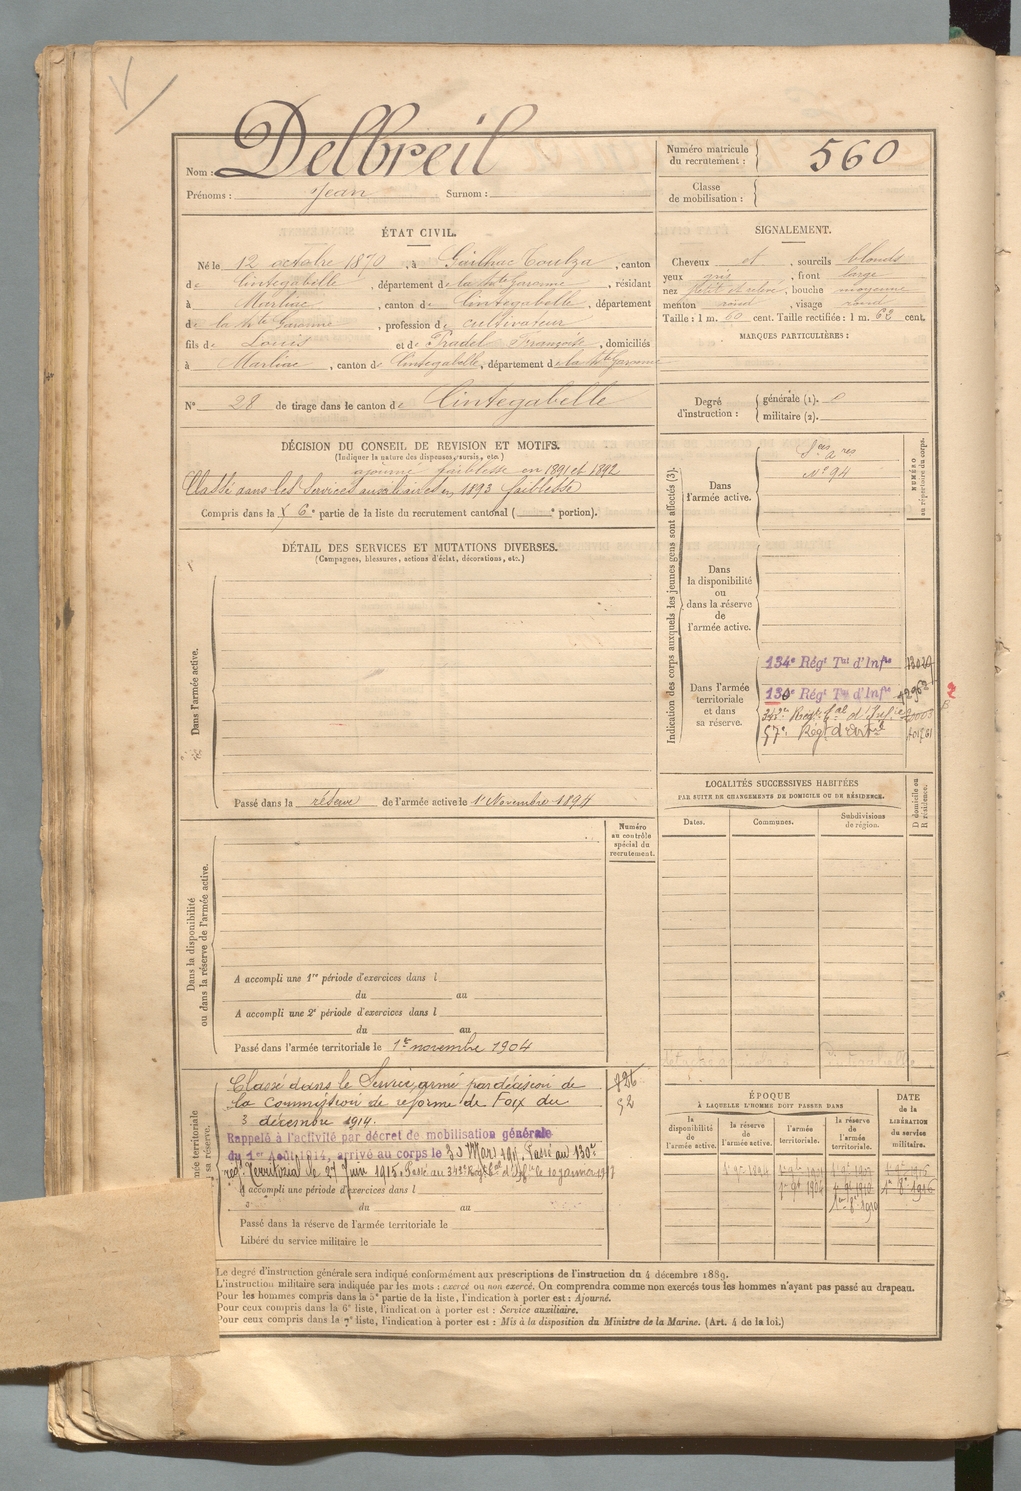 Nom : Delbreil
Prénoms : Jean Surnom :
Numéro matricule du recrutement : 560
Classe de mobilisation :
ÉTAT CIVIL.
Né le 12 octobre 1870, à Gailhac Toulza, canton
de Cintegabelle, département de la Hte Garonne, résidant
à Marliac, canton de Cintegabelle, département
de la Hte Garonne, profession de cultivateur
fils de Louis et de Pradel Françoise, domiciliés
à Marliac, canton de Cintegabelle, département de la Hte Garonne
N° 28 de tirage dans le canton de Cintegabelle
SIGNALEMENT.
Cheveux et, sourcils blonds
yeux gris, front large
nez petit et relevé, bouche moyenne
menton rond, visage rond
Taille : 1 m. 60 cent. Taille rectifiée : 1 m. 62 cent.
MARQUES PARTICULIÈRES :
Degré d'instruction : générale (1). 0
militaire (2).
DÉCISION DU CONSEIL DE REVISION ET MOTIFS.
(Indiquer la nature des dispenses, sursis, etc.)
ajourné faiblesse en 1891 et 1892
Classé dans les Services auxiliaires en 1893 faiblesse
Compris dans la 6e partie de la liste du recrutement cantonal ( e portion).
DÉTAIL DES SERVICES ET MUTATIONS DIVERSES.
(Campagnes, blessures, actions d'éclat, décorations, etc.)
Dans l'armée active.
Passé dans la réserve de l'armée active le 1er Novembre 1894
Indication des corps auxquels les jeunes gens sont affectés (3).
NUMÉRO au répertoire du corps.
Dans l'armée active.
N° 94
Dans la disponibilité ou dans la réserve de l'armée active.
Dans l'armée territoriale et dans sa réserve.
134e Régt Tal d'Infie
130e Régt Tal d'Infie
57e Régt d'Artie
LOCALITÉS SUCCESSIVES HABITÉES
PAR SUITE DE CHANGEMENTS DE DOMICILE OU DE RÉSIDENCE.
D domicile ou R résidence.
Dates. Communes. Subdivisions de région.
Dans la disponibilité ou dans la réserve de l'armée active.
Numéro au contrôle spécial du recrutement.
A accompli une 1re période d'exercices dans l
du au
A accompli une 2e période d'exercices dans l
du au
Passé dans l'armée territoriale le 1er novembre 1904
Classé dans le Service armé par décision de
la commission de réforme de Foix du
3 décembre 1914.
Rappelé à l'activité par décret de mobilisation générale
du 1er Août 1914, arrivé au corps le 30 Mars 1915. Passé au 130e
régt Territorial le 27 Juin 1915. Passé au 342e Régt Tal d'Infie le 10 janvier 1917
A accompli une période d'exercices dans l
du au
Passé dans la réserve de l'armée territoriale le
Libéré du service militaire le
ÉPOQUE
À LAQUELLE L'HOMME DOIT PASSER DANS
la disponibilité de l'armée active. la réserve de l'armée active. l'armée territoriale. la réserve de l'armée territoriale.
DATE de la LIBÉRATION du service militaire.
Le degré d'instruction générale sera indiqué conformément aux prescriptions de l'instruction du 4 décembre 1889.
L'instruction militaire sera indiquée par les mots : exercé ou non exercé. On comprendra comme non exercés tous les hommes n'ayant pas passé au drapeau.
Pour les hommes compris dans la 5e partie de la liste, l'indication à porter est : Ajourné.
Pour ceux compris dans la 6e liste, l'indication à porter est : Service auxiliaire.
Pour ceux compris dans la 7e liste, l'indication à porter est : Mis à la disposition du Ministre de la Marine. (Art. 4 de la loi.)